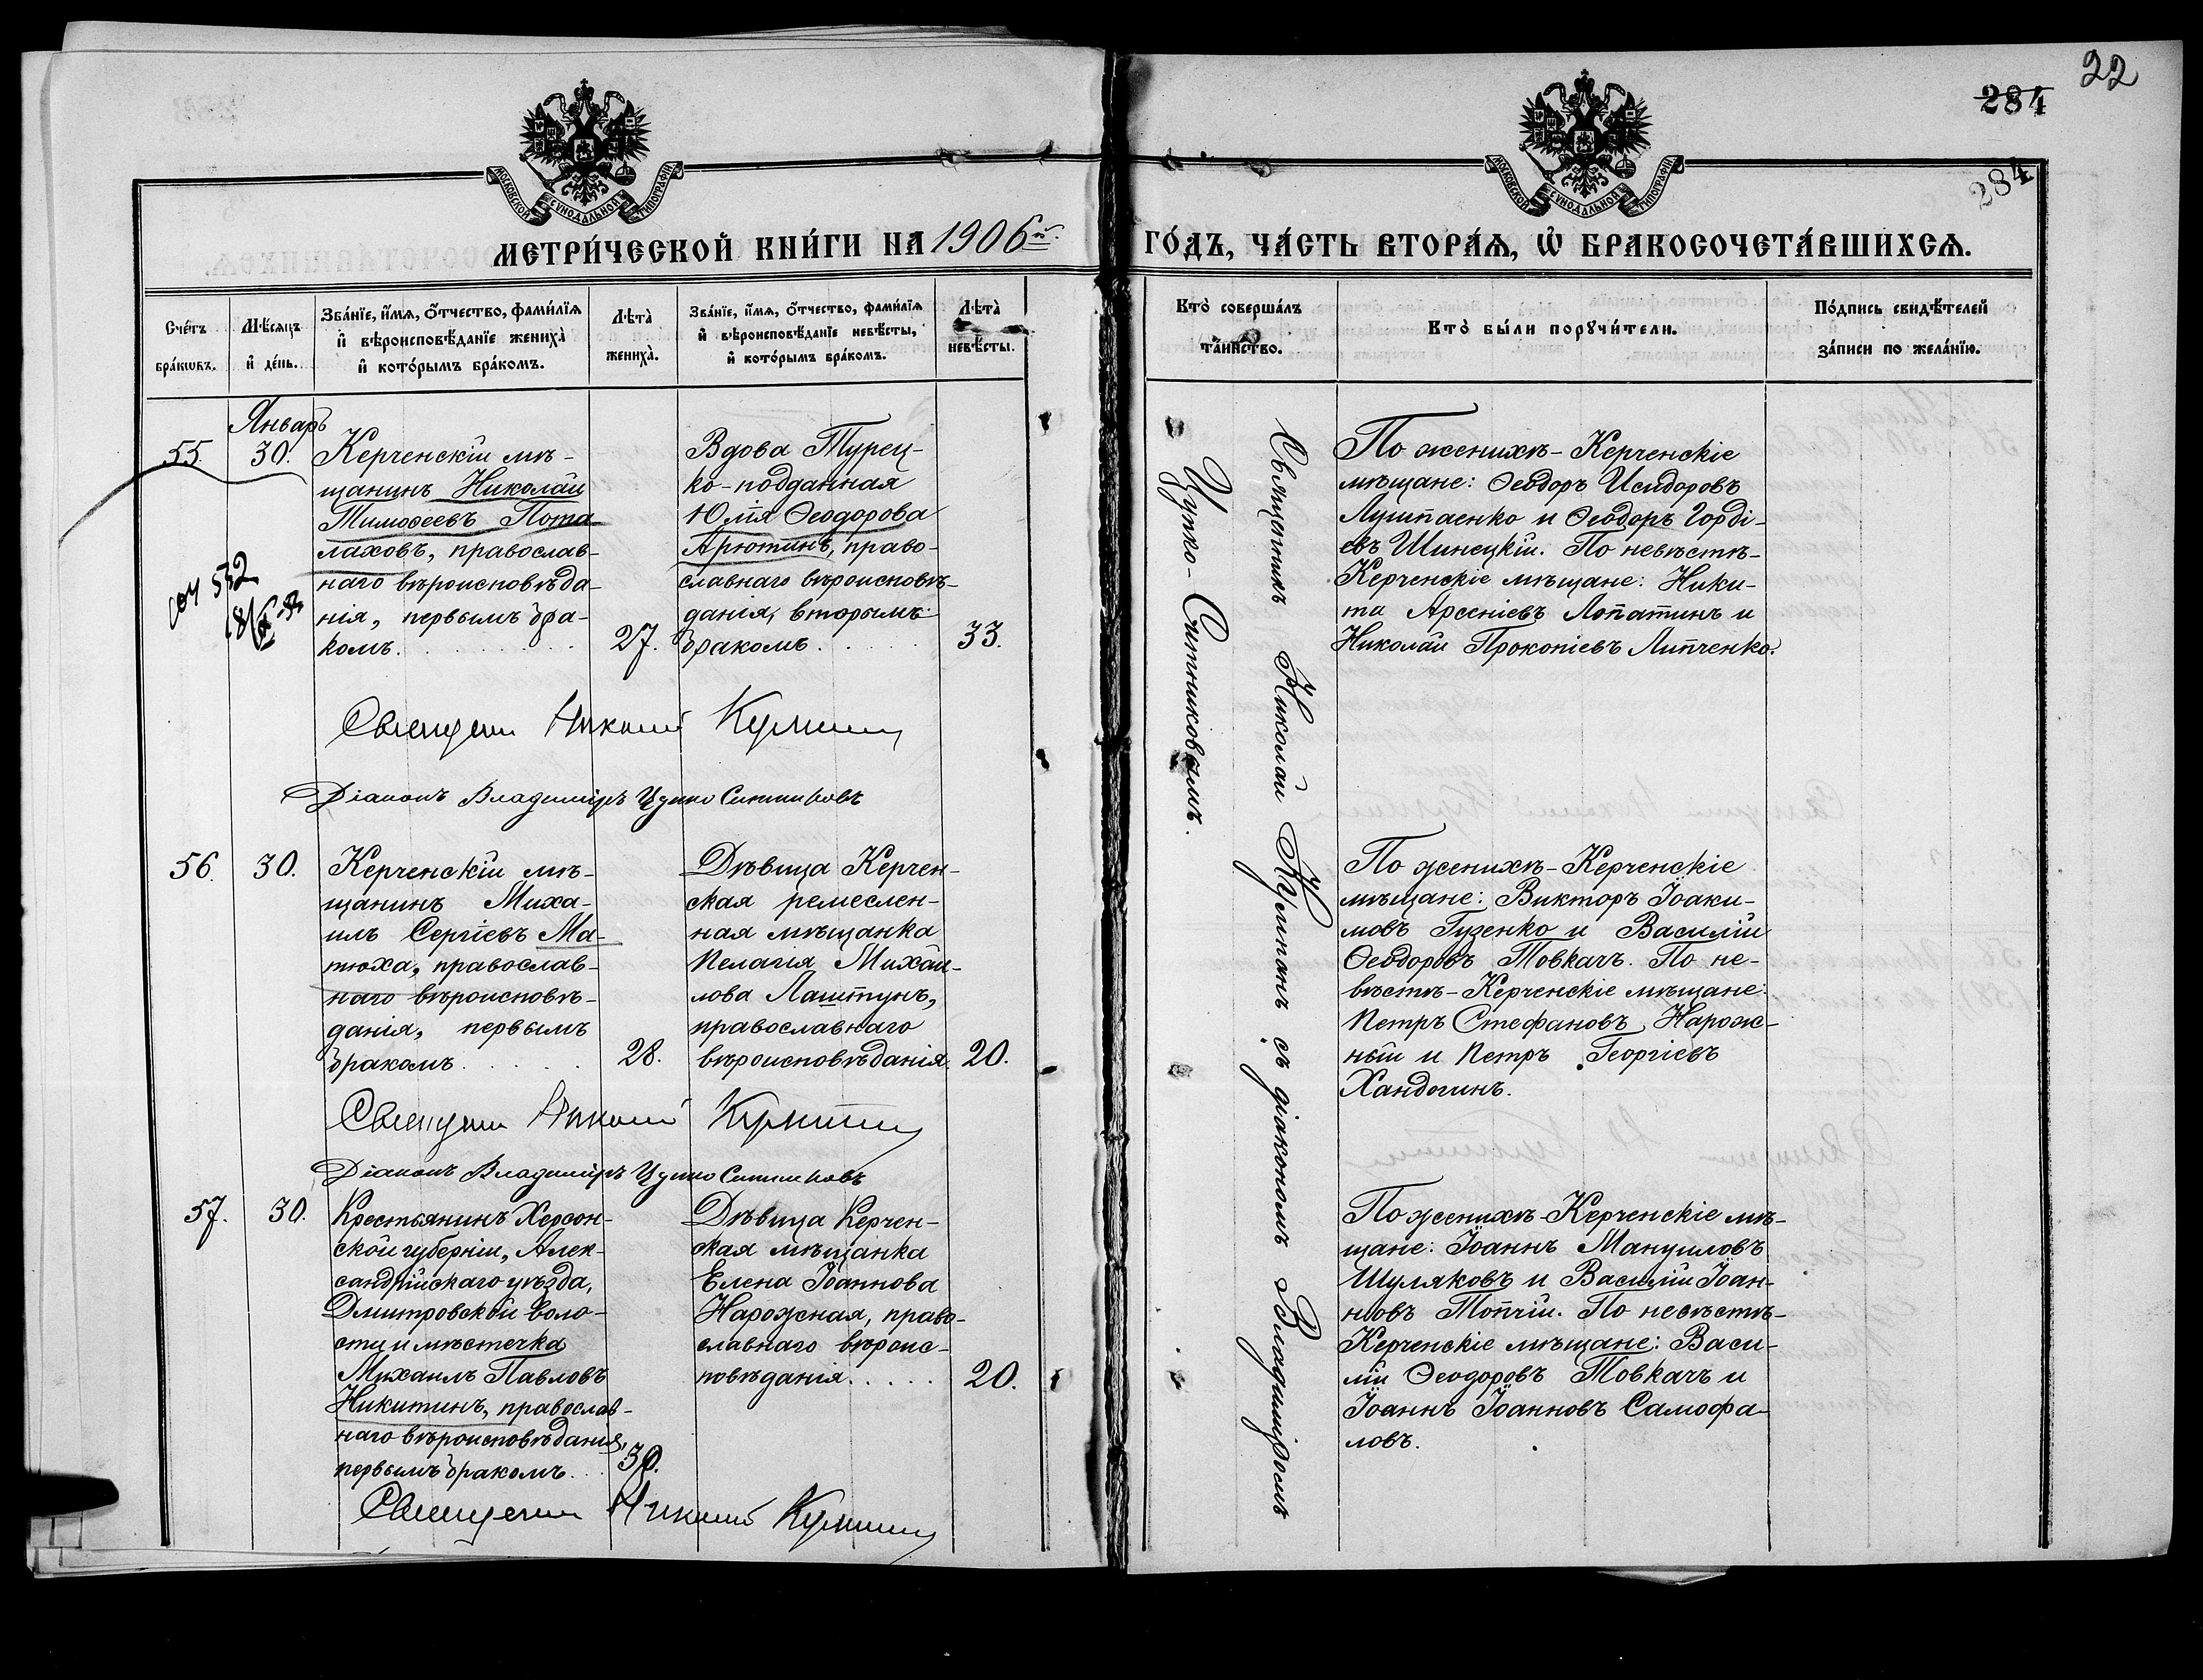 22
284
284
МОСКОВСКОЙ СѴНОДАЛЬНОЙ ТИПОГРАФІИ
МОСКОВСКОЙ СѴНОДАЛЬНОЙ ТИПОГРАФІИ
МЕТРИ́ЧЕСКОЙ КНИ́ГИ НА 1906й. ГО́ДЪ, ЧА́СТЬ ВТОРА́Ѧ, Ѡ҆ БРАКОСОЧЕТА́ВШИХСѦ.
Сче́тъ бра́кѡвъ.
Мѣ́сѧцъ и҆ де́нь.
Зва́нїе, и҆́мѧ, ѻ҆́тчество, фами́лїѧ
и҆ вѣроисповѣ́данїе жениха̀
и҆ кото́рымъ бра́комъ.
Лѣта̀ жениха̀.
Зва́нїе, и҆́мѧ, ѻ҆́тчество, фами́лїѧ
и҆ вѣроисповѣ́данїе невѣ́сты,
и҆ кото́рымъ бра́комъ.
Лѣта̀ невѣ́сты.
Кто̀ соверша́лъ та́инство.
Кто̀ бы́ли порꙋчи́тели.
По́дпись свидѣ́телей
за́писи по жела́нїю.
Январь
55.
30.
Керченскій мѣ-
щанинъ Николай
Тимоѳеевъ Пота-
лаховъ, православ-
наго вѣроисповѣда-
нія, первымъ бра-
комъ.
27.
Вдова Турец-
ко-подданная
Юлія Ѳеодорова
Арютинъ, право-
славнаго вѣроисповѣ-
данія, вторымъ
бракомъ.
33.
По женихѣ - Керченскіе
мѣщане: Ѳеодоръ Исидоровъ
Лушпаенко и Ѳеодоръ Горді-
евъ Шинецкій. По невѣстѣ-
Керченскіе мѣщане: Ники-
та Арсеніевъ Лопатинъ и
Николай Прокопіевъ Липченко.
532
Священникъ Николай Кулпанъ
Діаконъ Владиміръ Цупко Ситниковъ
56.
30.
Керченскій мѣ-
щанинъ Миха-
илъ Сергіевъ Ма-
тюха, православ-
наго вѣроисповѣ-
данія, первымъ
бракомъ
28.
Дѣвица Керчен-
ская ремеслен-
ная мѣщанка
Пелагія Михай-
лова Лаштунъ,
православнаго
вѣроисповѣданія.
20.
По женихѣ - Керченскіе
мѣщане: Викторъ Іоаки-
мовъ Гузенко и Василій
Ѳеодоровъ Товкачъ. По не-
вѣстѣ - Керченскіе мѣщане:
Петръ Стефановъ Нарож-
ный и Петръ Георгіевъ
Хандогинъ.
Священникъ Николай Кулпанъ
Діаконъ Владиміръ Цупко Ситниковъ
57.
30.
Крестьянинъ Херсон-
ской губерніи, Алек-
сандрійскаго уѣзда,
Дмитровской воло-
сти и мѣстечка
Михаилъ Павловъ
Никитинъ, православ-
наго вѣроисповѣданія,
первымъ бракомъ.
30.
Дѣвица Керчен-
ская мѣщанка
Елена Іоаннова
Нарожная, право-
славнаго вѣроис-
повѣданія.
20.
По женихѣ - Керченскіе мѣ-
щане: Іоаннъ Мануиловъ
Шуляковъ и Василій Іоан-
новъ Топчій. По невѣстѣ-
Керченскіе мѣщане: Васи-
лій Ѳеодоровъ Товкачъ и
Іоаннъ Іоанновъ Самофа-
ловъ.
Священникъ Николай Кулпанъ
Священникъ Николай Кулпанъ съ діакономъ Владиміромъ
Цупко-Ситниковымъ.